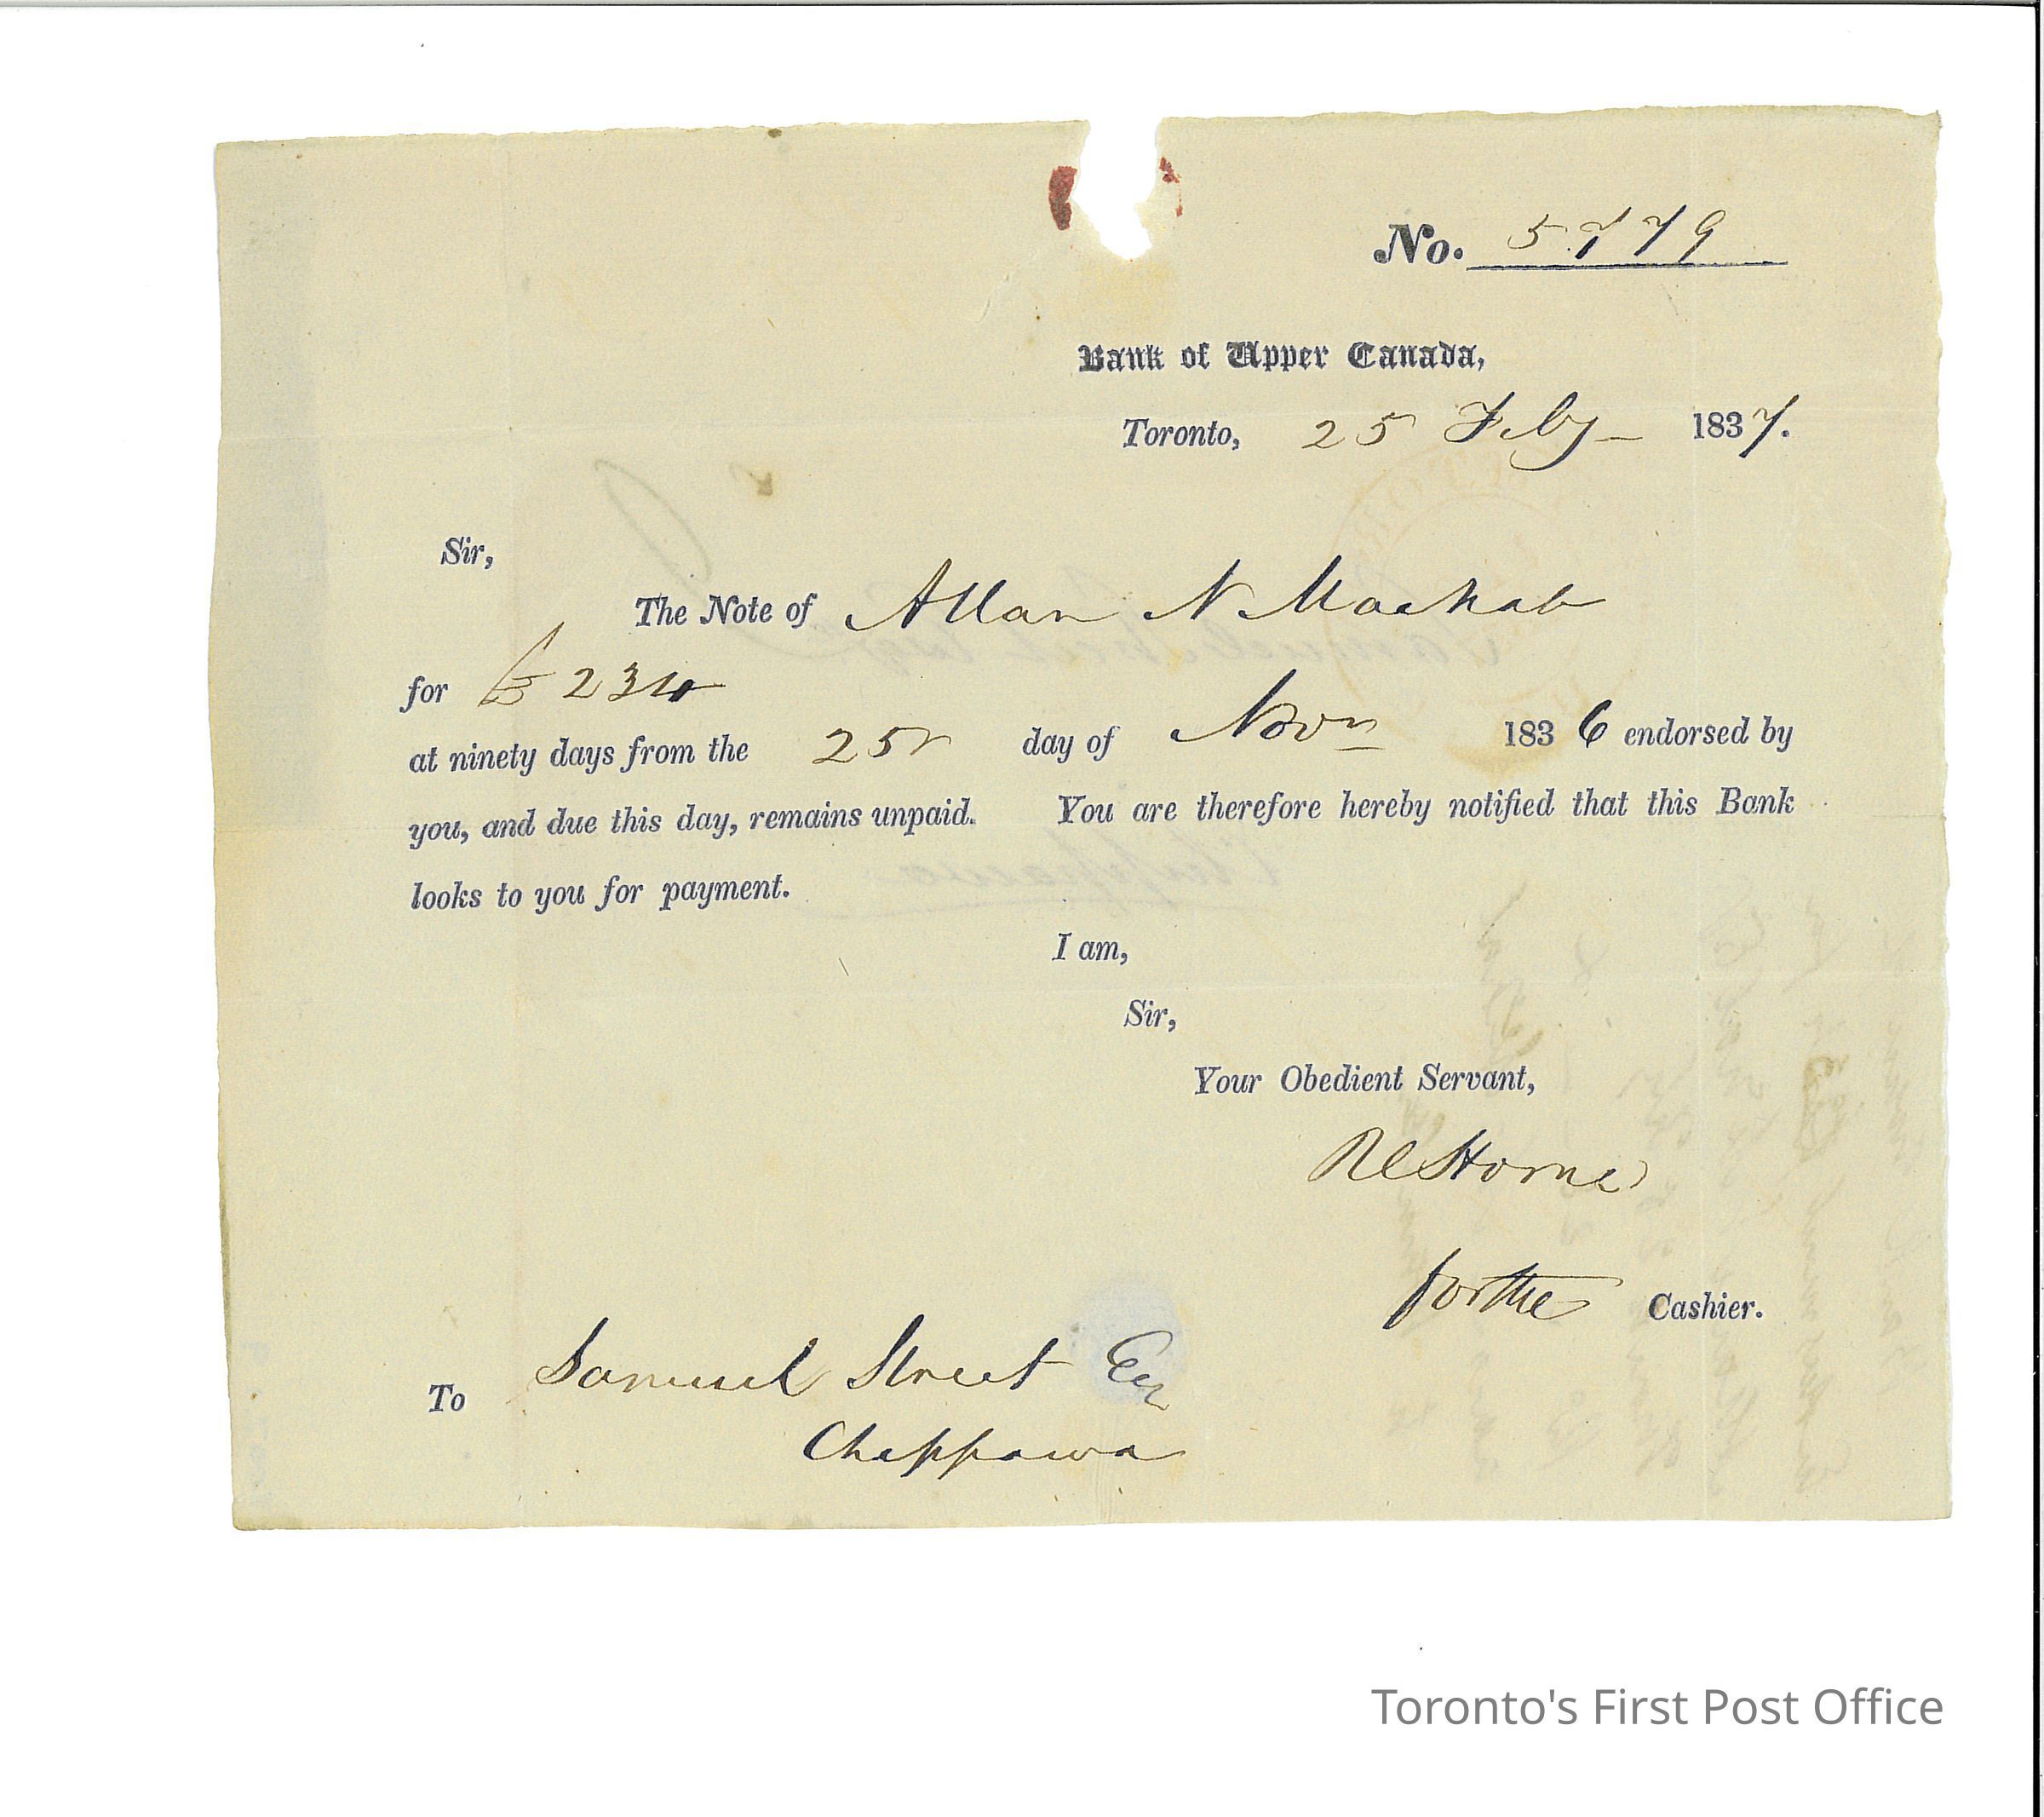 No. 5779
Bank of Upper Canada,
Toronto, 25 Feby 1837.
Sir,
The Note of Allan N Macnab
for £ 234
at ninety days from the 25 day of Novr 1836 endorsed by
you, and due this day, remains unpaid. You are therefore hereby notified that this Bank
looks to you for payment.
I am,
Sir,
Your Obedient Servant,
RC Horne
for the Cashier.
To Samuel Street Esq
Chippawa
Toronto's First Post Office